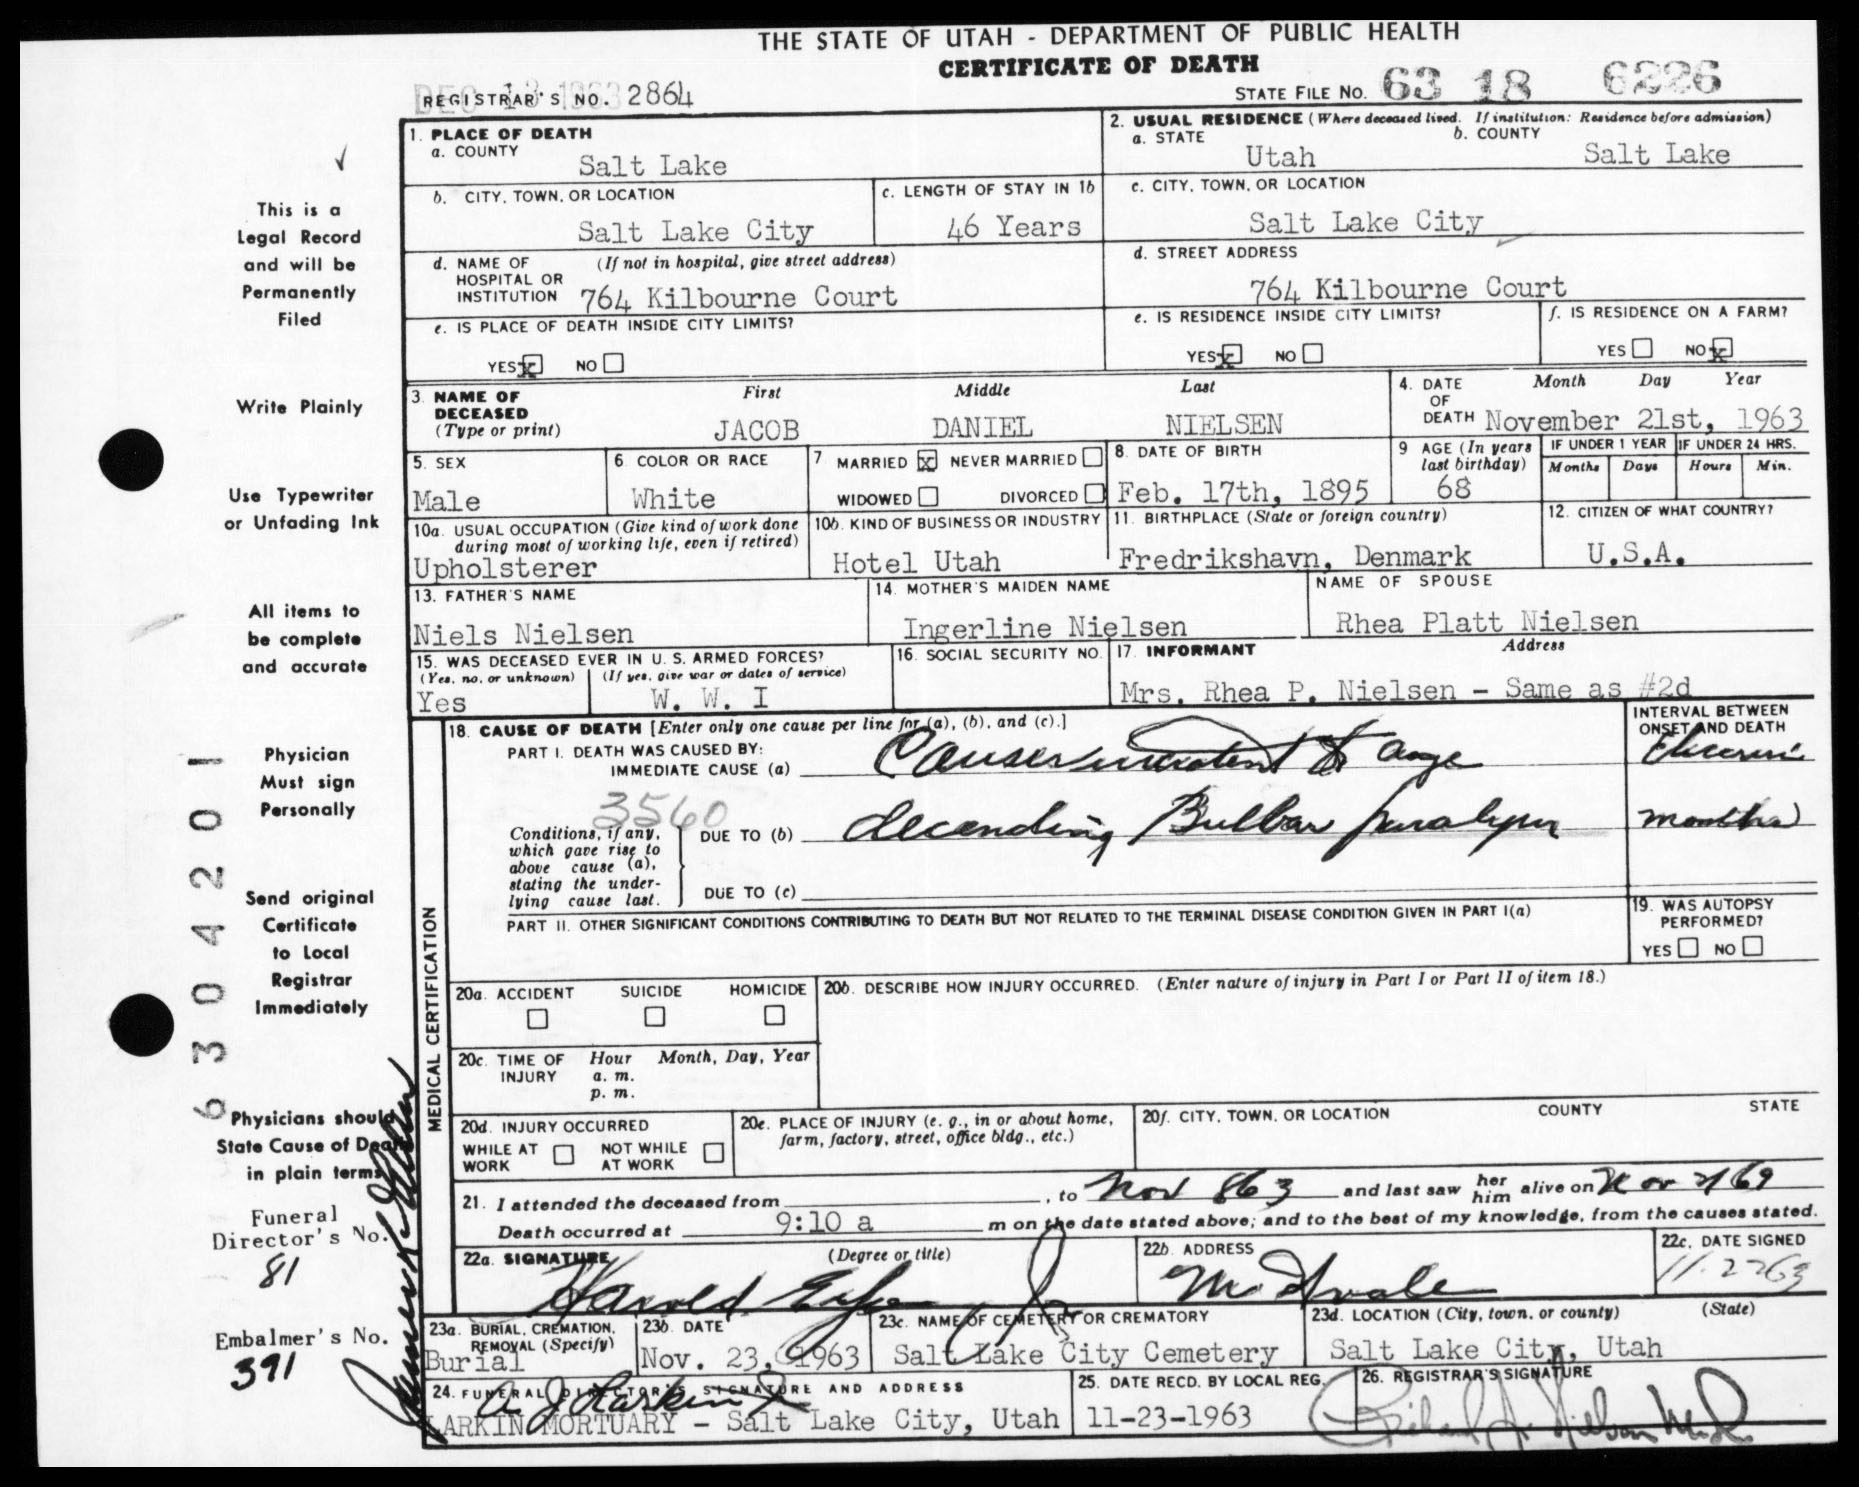 THE STATE OF UTAH - DEPARTMENT OF PUBLIC HEALTH
CERTIFICATE OF DEATH
DEC 13 1963
REGISTRAR'S NO. 2864
STATE FILE NO. 63 18 6226
1. PLACE OF DEATH
a. COUNTY
Salt Lake
2. USUAL RESIDENCE (Where deceased lived. If institution: Residence before admission)
a. STATE b. COUNTY
Utah Salt Lake
b. CITY, TOWN, OR LOCATION
Salt Lake City
c. LENGTH OF STAY IN 1b
46 Years
c. CITY, TOWN, OR LOCATION
Salt Lake City
d. NAME OF HOSPITAL OR INSTITUTION (If not in hospital, give street address)
764 Kilbourne Court
d. STREET ADDRESS
764 Kilbourne Court
e. IS PLACE OF DEATH INSIDE CITY LIMITS?
YES x NO
e. IS RESIDENCE INSIDE CITY LIMITS?
YES x NO
f. IS RESIDENCE ON A FARM?
YES NO x
3. NAME OF DECEASED (Type or print)
First Middle Last
JACOB DANIEL NIELSEN
4. DATE OF DEATH Month Day Year
November 21st, 1963
5. SEX
Male
6. COLOR OR RACE
White
7 MARRIED x NEVER MARRIED
WIDOWED DIVORCED
8. DATE OF BIRTH
Feb. 17th, 1895
9 AGE (In years last birthday)
68
IF UNDER 1 YEAR IF UNDER 24 HRS.
Months Days Hours Min.
10a. USUAL OCCUPATION (Give kind of work done during most of working life, even if retired)
Upholsterer
10b. KIND OF BUSINESS OR INDUSTRY
Hotel Utah
11. BIRTHPLACE (State or foreign country)
Fredrikshavn, Denmark
12. CITIZEN OF WHAT COUNTRY?
U.S.A.
13. FATHER'S NAME
Niels Nielsen
14. MOTHER'S MAIDEN NAME
Ingerline Nielsen
NAME OF SPOUSE
Rhea Platt Nielsen
15. WAS DECEASED EVER IN U.S. ARMED FORCES?
(Yes, no, or unknown) (If yes, give war or dates of service)
Yes W. W. I
16. SOCIAL SECURITY NO.
17. INFORMANT Address
Mrs. Rhea P. Nielsen - Same as #2d
18. CAUSE OF DEATH [Enter only one cause per line for (a), (b), and (c).]
PART I. DEATH WAS CAUSED BY:
IMMEDIATE CAUSE (a) Causes incident to age
INTERVAL BETWEEN ONSET AND DEATH
months
3560
Conditions, if any, which gave rise to above cause (a), stating the underlying cause last.
DUE TO (b) decending Bulbar paralysis
DUE TO (c)
PART II. OTHER SIGNIFICANT CONDITIONS CONTRIBUTING TO DEATH BUT NOT RELATED TO THE TERMINAL DISEASE CONDITION GIVEN IN PART I(a)
19. WAS AUTOPSY PERFORMED?
YES NO
MEDICAL CERTIFICATION
20a. ACCIDENT SUICIDE HOMICIDE
20b. DESCRIBE HOW INJURY OCCURRED. (Enter nature of injury in Part I or Part II of item 18.)
20c. TIME OF INJURY Hour Month, Day, Year
a. m.
p. m.
20d. INJURY OCCURRED
WHILE AT WORK NOT WHILE AT WORK
20e. PLACE OF INJURY (e. g., in or about home, farm, factory, street, office bldg., etc.)
20f. CITY, TOWN, OR LOCATION COUNTY STATE
21. I attended the deceased from , to Nov 863 and last saw her him alive on Nov
Death occurred at 9:10 a m on the date stated above; and to the best of my knowledge, from the causes stated.
22a. SIGNATURE (Degree or title)
Harold
22b. ADDRESS
22c. DATE SIGNED
11-2263
23a. BURIAL, CREMATION, REMOVAL (Specify)
Burial
23b. DATE
Nov. 23, 1963
23c. NAME OF CEMETERY OR CREMATORY
Salt Lake City Cemetery
23d. LOCATION (City, town, or county) (State)
Salt Lake City, Utah
24. FUNERAL DIRECTOR'S SIGNATURE AND ADDRESS
A J Larkin
LARKIN MORTUARY - Salt Lake City, Utah
25. DATE RECD. BY LOCAL REG.
11-23-1963
26. REGISTRAR'S SIGNATURE
This is a
Legal Record
and will be
Permanently
Filed
Write Plainly
Use Typewriter
or Unfading Ink
All items to
be complete
and accurate
Physician
Must sign
Personally
Send original
Certificate
to Local
Registrar
Immediately
Physicians should
State Cause of Death
in plain terms
Funeral
Director's No.
81
Embalmer's No.
391
6304201